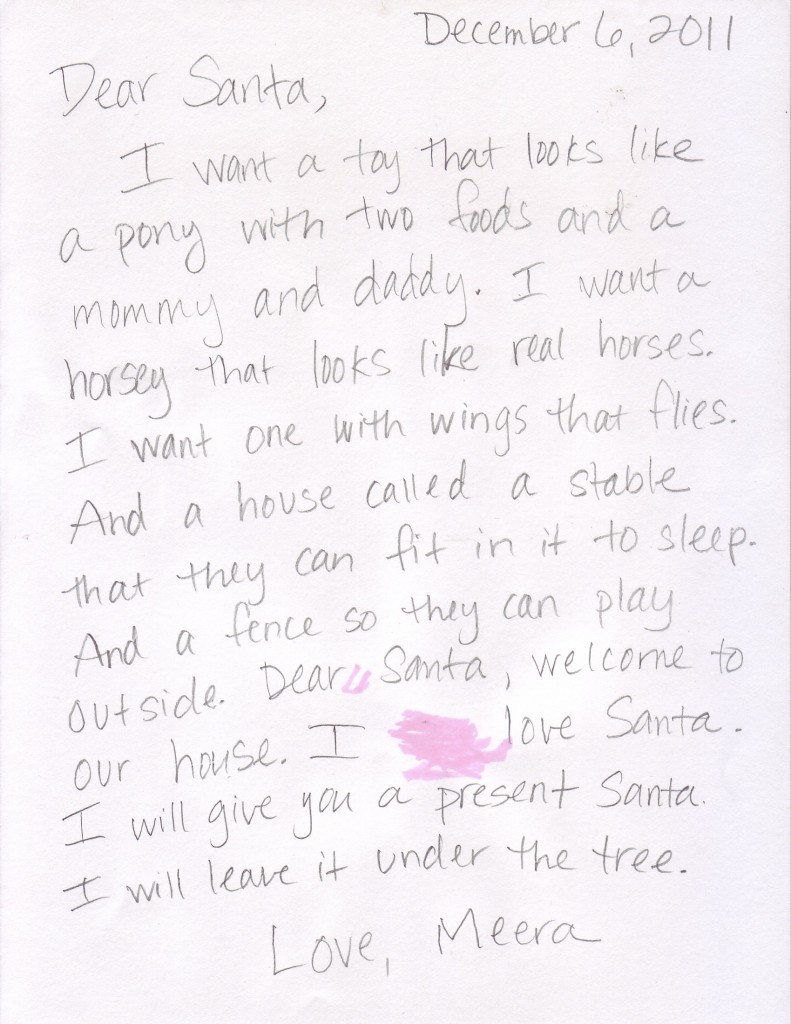 December 6, 2011
Dear Santa,
I want a toy that looks like
a pony with two foods and a
mommy and daddy. I want a
horsey that looks like real horses.
I want one with wings that flies.
And a house called a stable
that they can fit in it to sleep.
And a fence so they can play
outside. Dear Santa, welcome to
our house. I love Santa.
I will give you a present Santa.
I will leave it under the tree.
Love, Meera